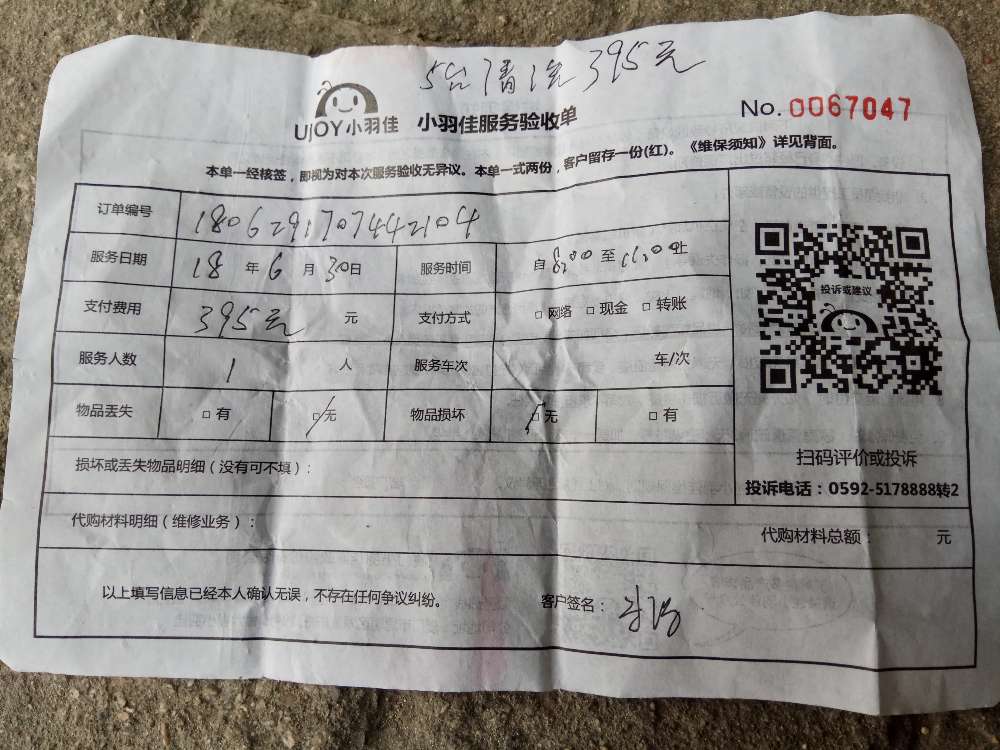 5台清洗395元
UJOY小羽佳 小羽佳服务验收单 No.0067047
本单一经核签，即视为对本次服务验收无异议。本单一式两份，客户留存一份(红)。《维保须知》详见背面。
订单编号 18062917074442104
服务日期 18 年 6 月 30日 服务时间 自 8:00 至 11:00 止
支付费用 395元 元 支付方式 □ 网络 □ 现金 □ 转账
投诉或建议
服务人数 1 人 服务车次 车/次
物品丢失 □ 有 □ 无 物品损坏 □ 无 □ 有
扫码评价或投诉
损坏或丢失物品明细（没有可不填）：
投诉电话：0592-5178888转2
代购材料明细（维修业务）： 代购材料总额： 元
以上填写信息已经本人确认无误，不存在任何争议纠纷。 客户签名：